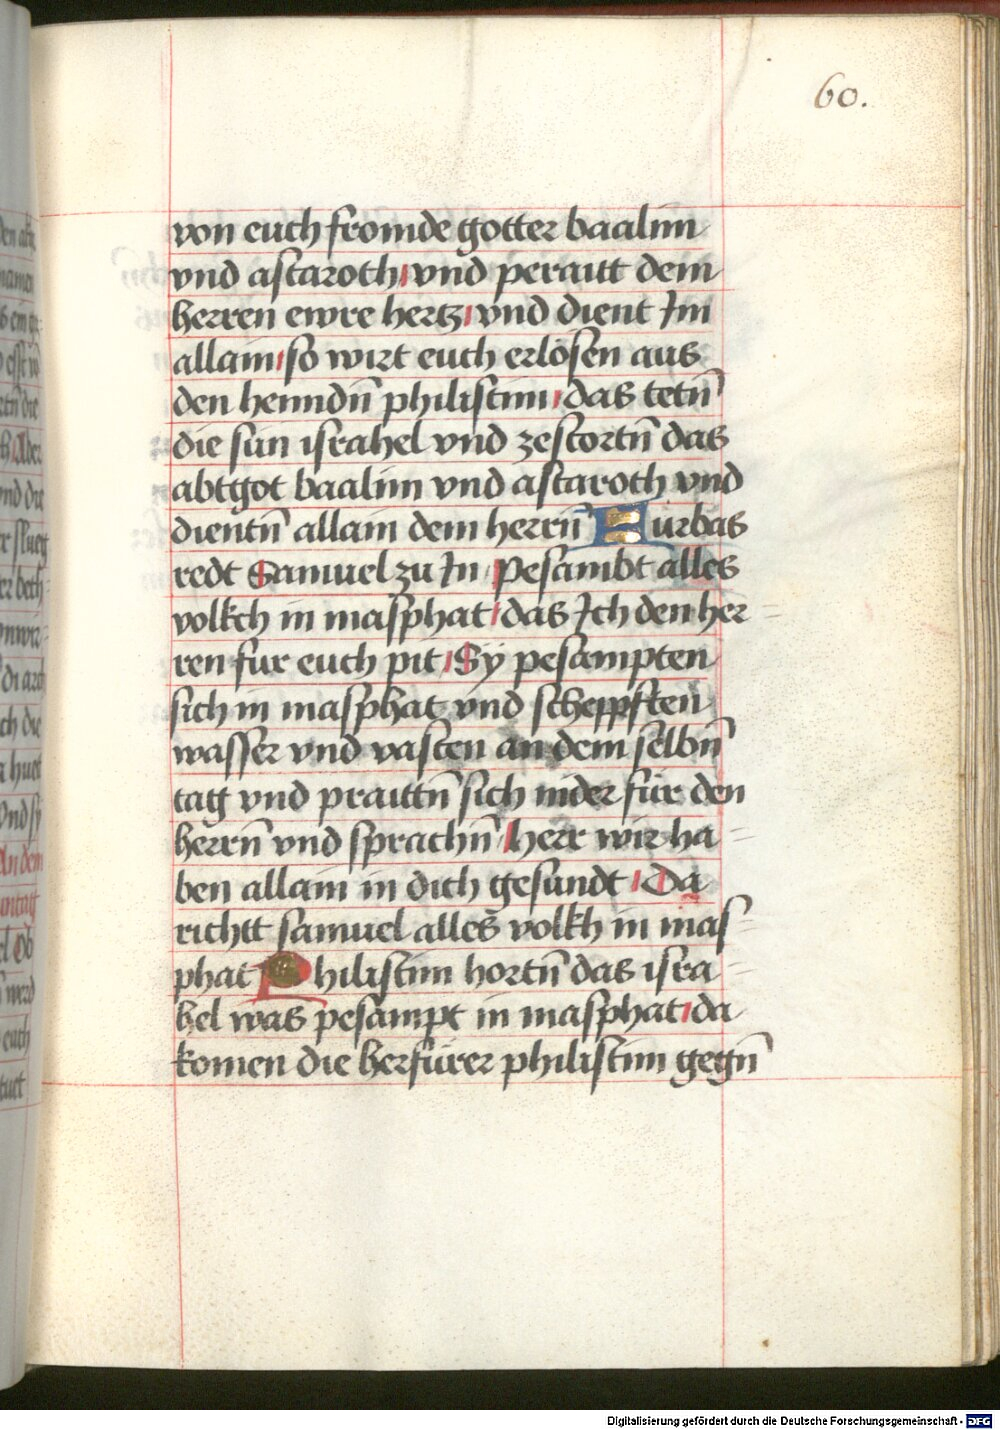 60.
von euch fromde gotter baalim
vnd astaroth vnd peraitt dem
herren ewre hertz vnd dient Im
allain so wirt euch erlosen aus
den henndn̄ philistim das tetn̄
die sün israhel vnd zestortn̄ das
abtgot baalim vnd astaroth vnd
dientn̄ allain dem herrn̄ Furbas
redt Samuel zu In Pesambt alles
volkch in masphat das Ich den her
ren fur euch pit Sÿ pesampten
sich in masphat vnd scheppften
wasser vnd vasten an dem selbn̄
tag vnd praittn̄ sich nider für den
herrn̄ vnd sprachn̄ herr wir ha
ben allain in dich gesundt Da
richtt samuel alles volkh in mas
phat Philistim hortn̄ das isra
hel was pesampt in masphat da
komen die herfürer philistim gegn̄
Digitalisierung gefördert durch die Deutsche Forschungsgemeinschaft - DFG